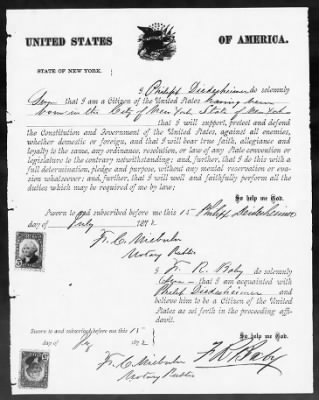 UNITED STATES OF AMERICA.
STATE OF NEW YORK.
I Philipp Deidesheimer do solemnly
Swear that I am a Citizen of the United States having been
born in the City of New York State of New York
that I will support, protect and defend
the Constitution and Government of the United States, against all enemies,
whether domestic or foreign, and that I will bear true faith, allegiance and
loyalty to the same, any ordinance, resolution, or law of any State convention or
legislature to the contrary notwithstanding; and, further, that I do this with a
full determination, pledge and purpose, without any mental reservation or eva-
sion whatsoever; and, further, that I will well and faithfully perform all the
duties which may be required of me by law;
So help me God.
Sworn to and subscribed before me this 15 Philipp Deidesheimer
day of July 1872
Notary Public
I F. R. Baby do solemnly
Swear that I am acquainted with
Philipp Deidesheimer and
believe him to be a Citizen of the United
States as set forth in the preceding affi-
davit.
So help me God.
Sworn to and subscribed before me this 15
day of Jy 1872 F R Baby
Notary Public